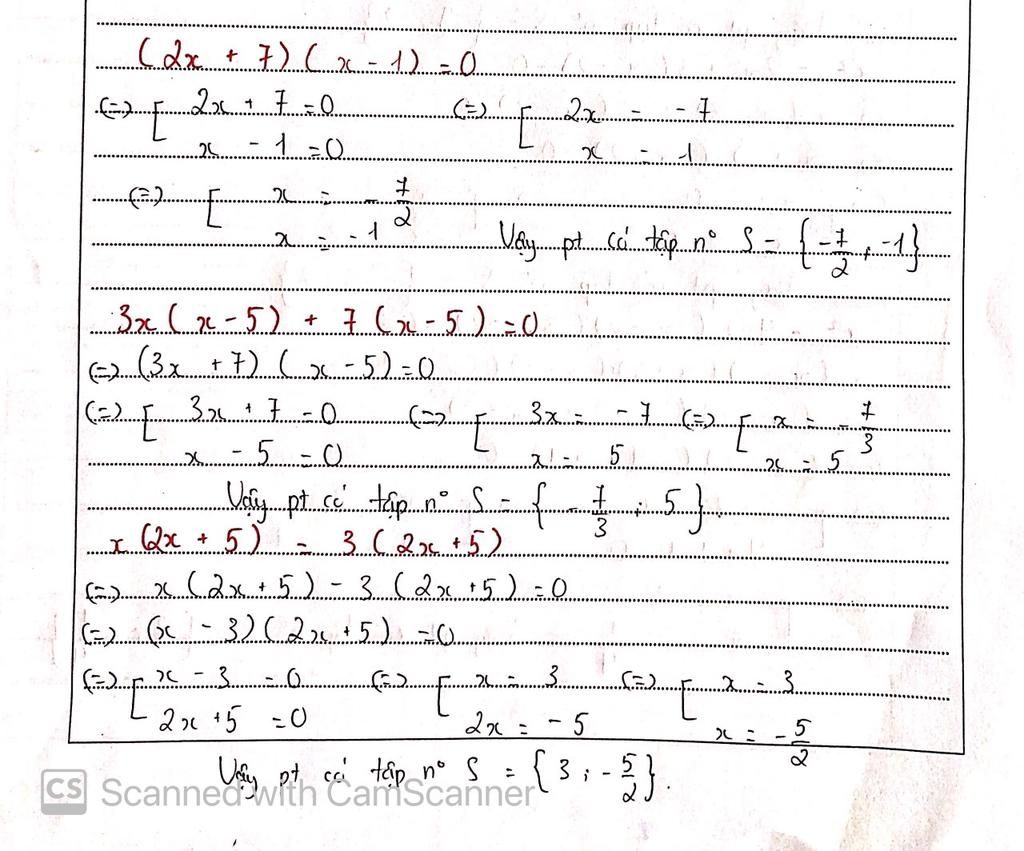 (2x + 7) ( x - 1) = 0
(=) [ 2x + 7 = 0 (=) [ 2x = - 7
x - 1 = 0 x = 1
(=) [ x = - 7/2
x = - 1 Vậy pt có tập n° S = { -7/2 , -1}
3x ( x - 5) + 7 ( x - 5 ) = 0
(=) (3x + 7) ( x - 5) = 0
(=) [ 3x + 7 = 0 (=) [ 3x = - 7 (=) [ x = - 7/3
x - 5 = 0 x = 5 x = 5
Vậy pt có tập n° S = { - 7/3 ; 5 }.
x (2x + 5) = 3 ( 2x + 5)
(=) x ( 2x + 5 ) - 3 ( 2x + 5 ) = 0
(=) (x - 3) ( 2x + 5 ) = 0
(=) [ x - 3 = 0 (=) [ x = 3 (=) [ x = 3
2x + 5 = 0 2x = - 5 x = - 5/2
Vậy pt có tập n° S = { 3 ; - 5/2 }.
CS Scanned with CamScanner